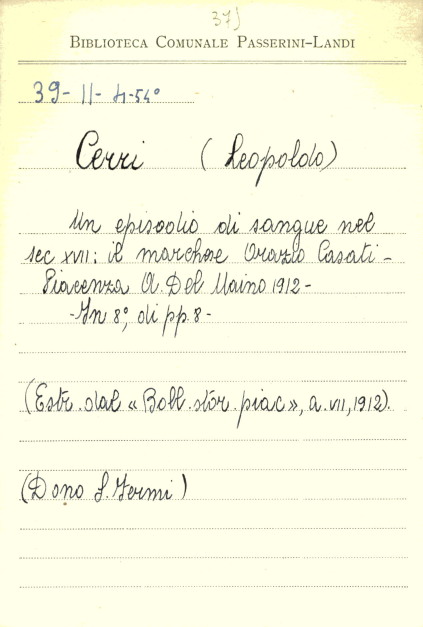 37)
BIBLIOTECA COMUNALE PASSERINI-LANDI
39-11-4-54°
Cerri (Leopoldo)
Un episodio di sangue nel
sec XVII: il marchese Orazio Casati -
Piacenza A. Del Maino 1912 -
- In 8°, di pp. 8 -
(Estr. dal « Boll. stor. piac », a. VII, 1912).
(Dono S. Fermi)